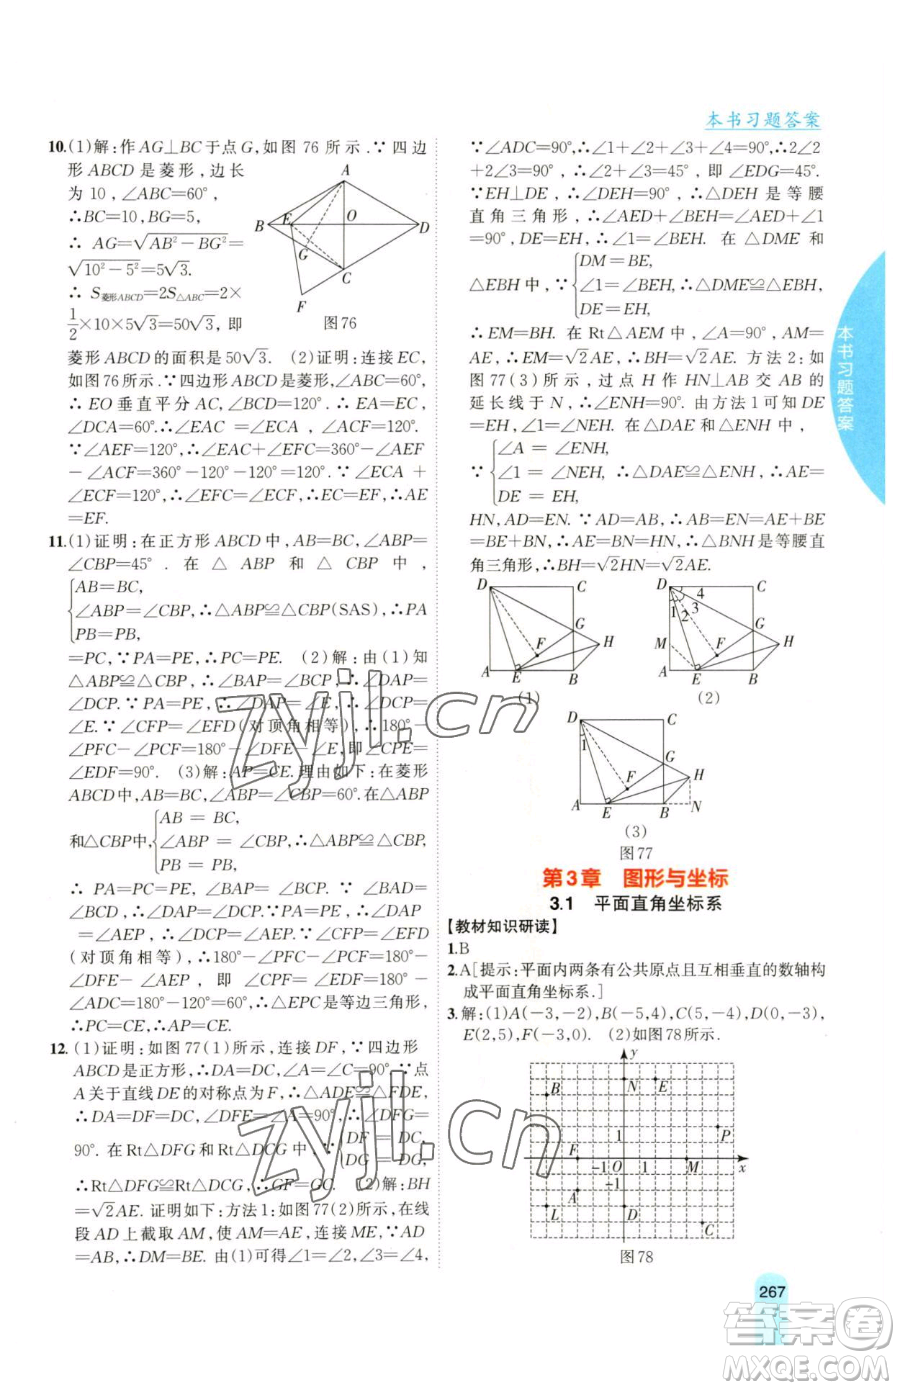 本书习题答案
10.(1)解:作AG⊥BC于点G,如图76所示.∵四边
形ABCD是菱形,边长
为10,∠ABC=60°,
∴BC=10,BG=5,
∴AG=√(AB²-BG²)=
√(10²-5²)=5√3.
∴S菱形ABCD=2S△ABC=2×
1/2×10×5√3=50√3,即
A
B
E
O
D
G
C
F
图76
菱形ABCD的面积是50√3.(2)证明:连接EC,
如图76所示.∵四边形ABCD是菱形,∠ABC=60°,
∴EO垂直平分AC,∠BCD=120°.∴EA=EC,
∠DCA=60°.∴∠ECA=∠ECA,∠ACF=120°.
∵∠AEF=120°,∴∠EAC+∠EFC=360°-∠AEF
-∠ACF=360°-120°-120°=120°.∵∠ECA+
∠ECF=120°,∴∠EFC=∠ECF,∴EC=EF,∴AE
=EF.
11.(1)证明:在正方形ABCD中,AB=BC,∠ABP=
∠CBP=45°.在△ABP和△CBP中,
AB=BC,
∠ABP=∠CBP,∴△ABP≌△CBP(SAS),∴PA
PB=PB,
=PC,∵PA=PE,∴PC=PE.(2)解:由(1)知
△ABP≌△CBP,∴∠BAP=∠BCP,∴∠DAP=
∠DCP.∵PA=PE,∴∠DAP=∠E,∴∠DCP=
∠E.∵∠CFP=∠EFD(对顶角相等),∴180°-
∠PFC-∠PCF=180°-∠DFE-∠E,即∠CPE=
∠EDF=90°.(3)解:AP=CE.理由如下:在菱形
ABCD中,AB=BC,∠ABP=∠CBP=60°.在△ABP
和△CBP中,
AB=BC,
∠ABP=∠CBP,∴△ABP≌△CBP,
PB=PB,
∴PA=PC=PE,∴∠BAP=∠BCP,
∴∠DAP=∠DCP,∵PA=PE,∴∠DAP
=∠AEP,∴∠DCP=∠AEP.∵∠CFP=∠EFD
(对顶角相等),∴180°-∠PFC-∠PCF=180°-
∠DFE-∠AEP,即∠CPF=∠EDF=180°-
∠ADC=180°-120°=60°,∴△EPC是等边三角形,
∴PC=CE,∴AP=CE.
12.(1)证明:如图77(1)所示,连接DF,∵四边形
ABCD是正方形,∴DA=DC,∠A=∠C=90°.∵点
A关于直线DE的对称点为F,∴△ADE≌△FDE,
∴DA=DF=DC,∠DFE=∠A=90°,∴∠DFG=
90°.在Rt△DFG和Rt△DCG中,∵
DF=DC,
DG=DG,
∴Rt△DFG≌Rt△DCG,∴GF=GC.(2)解:BH
=√2AE.证明如下:方法1:如图77(2)所示,在线
段AD上截取AM,使AM=AE,连接ME,∵AD
=AB,∴DM=BE.由(1)可得∠1=∠2,∠3=∠4,
∵∠ADC=90°,∴∠1+∠2+∠3+∠4=90°,∴2∠2
+2∠3=90°,∴∠2+∠3=45°,即∠EDG=45°.
∵EH⊥DE,∴∠DEH=90°,∴△DEH是等腰
直角三角形,∴∠AED+∠BEH=∠AED+∠1
=90°,DE=EH,∴∠1=∠BEH.在△DME和
△EBH中,∵
DM=BE,
∠1=∠BEH,∴△DME≌△EBH,
DE=EH,
∴EM=BH.在Rt△AEM中,∠A=90°,AM=
AE,∴EM=√2AE,∴BH=√2AE.方法2:如图
77(3)所示,过点H作HN⊥AB交AB的
延长线于N,∴∠ENH=90°.由方法1可知DE
=EH,∠1=∠NEH.在△DAE和△ENH中,
∵
∠A=∠ENH,
∠1=∠NEH,∴△DAE≌△ENH,∴AE=
DE=EH,
HN,AD=EN.∵AD=AB,∴AB=EN=AE+
BE=BE+BN,∴AE=BN=HN,∴△BHN是等腰直
角三角形,∴BH=√2HN=√2AE.
D
C
G
F
H
A
E
B
(1)
D
C
4
1
2
3
G
M
F
H
A
E
B
(2)
D
C
1
G
F
H
A
E
B
N
(3)
图77
第3章 图形与坐标
3.1 平面直角坐标系
【教材知识研读】
1.B
2.A[提示:平面内两条有公共原点且互相垂直的数轴构
成平面直角坐标系.]
3.解:(1)A(-3,-2),B(-5,4),C(5,-4),D(0,-3),
E(2,5),F(-3,0).(2)如图78所示.
y
B
N
E
P
1
F
-1
O
1
M
x
-1
A
L
D
C
图78
本书习题答案
267
zyjl.cn
zyjl.cn
答案圈
MXQE.COM